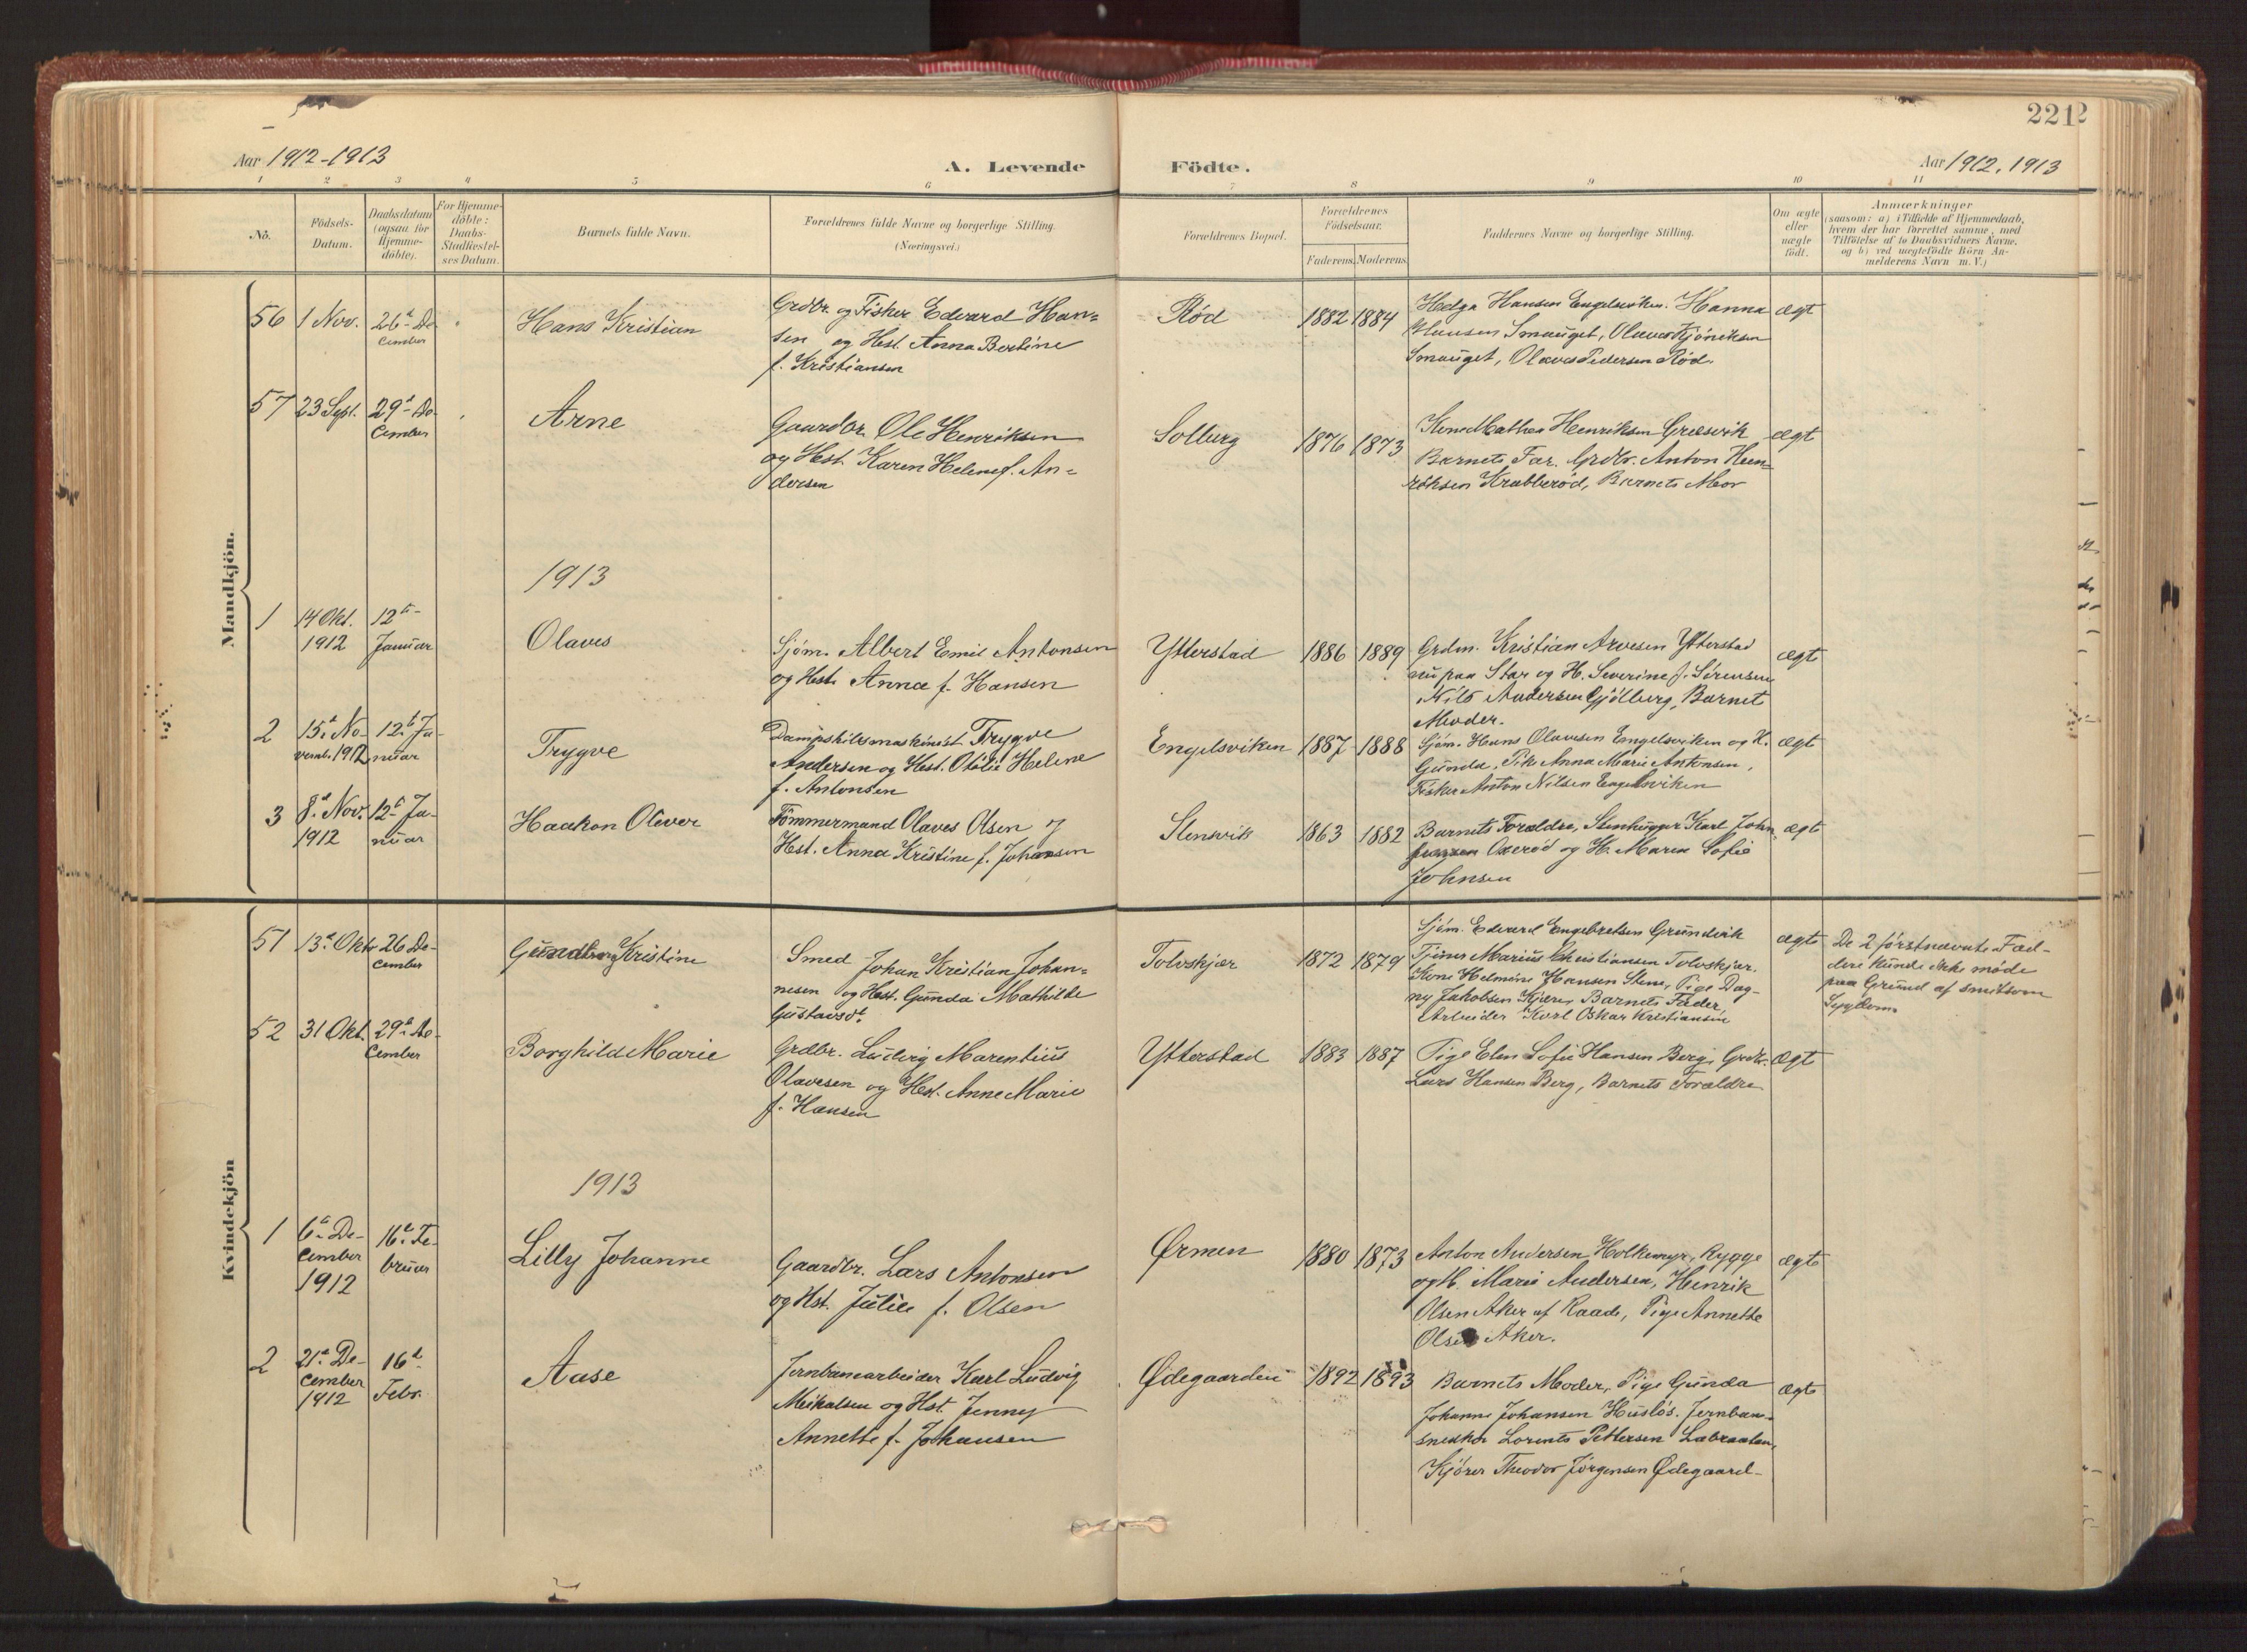 2212
Aar 1912-1913
A. Levende Födte.
Aar 1912. 1913
1 2 3 4 5 6 7 8 9 10 11
No.
Födsels-
Datum.
Daabsdatum
(ogsaa for
Hjemme-
döbte).
For Hjemme-
döbte:
Daabs-
Stadfæstel-
ses Datum.
Barnets fulde Navn.
Forældrenes fulde Navne og borgerlige Stilling.
(Næringsvei.)
Forældrenes Bopæl.
Forældrenes
Födselsaar.
Faderens. Moderens.
Faddernes Navne og borgerlige Stilling.
Om ægte
eller
uægte
födt.
Anmærkninger
(saasom: a) i Tilfælde af Hjemmedaab,
hvem der har forrettet samme, med
Tilföielse af to Daabsvidners Navne,
og b) ved uægtefödte Börn An-
melderens Navn m. V.)
Mandkjön.
56 1 Nov. 26d De-
cember
Hans Kristian
Grdbr. og Fisker Edvard Han=
sen og Hst. Anna Bertine
f. Kristiansen
Rød
1882 1884
Helga Hansen Engelsviken. Hanna
Hansen Smauget, Olaves
Smauget, Olava Pedersen Rød.
ægte
57 23 Sept. 29d De-
cember
Arne
Gaardbr. Ole Henriksen
og Hst. Karen Helene f. An=
dersen
Solberg
1876 1873
Kone Mathea Henriksen Gresvik
Barnets Far. Grdbr. Anton Hen=
riksen Krabberød, Barnets Mor
ægte
1913
1 14 Okt.
1912
12te
Januar
Olaves
Sjøm. Albert Emil Antonsen
og Hst. Anna f. Hansen
Ytterstad
1886 1889
Grdm. Kristian Arvesen Ytterstad
nu paa Star og H. Severine f. Sørensen
Nils Andersen Gjølberg, Barnet
Moder.
ægte
2 15d No-
vemb. 1912
12te Ja-
nuar
Trygve
Dampskibsmaskinist Trygve
Andersen og Hst. Otilie Helene
f. Antonsen
Engelsviken
1887 1888
Sjøm. Hans Olavesen Engelsviken og H.
Gunda, Pike Anna Marie Antonsen,
Fisker Anton Nilsen Engelsviken
ægte
3 8d Nov.
1912
12te Ja-
nuar
Haakon Oliver
Tømmermand Olaves Olsen og
Hst. Anna Kristine f. Johansen
Stensvik
1863 1882
Barnets Forældre, Stenhugger Karl John
Oxerød og H. Maren Sofie
Johnsen
ægte
Kvindekjön
51 13d Okt. 26 De-
cember
Gundborg Kristine
Smed Johan Kristian Johan=
nesen og Hst. Gunda Mathilde
Gustavsdt.
Tolvskjær
1872 1879
Sjøm. Edvard Engebretsen Grundvik
Tjener Marius Christiansen Tolvskjær.
Kone Helmine Hansen Stene, Pige Dag-
ny Jakobsen Kjære, Barnets Fader,
Arbeider Karl Oskar Kristiansen
ægte
De 2 førstnævnte Fad-
dere kunde ikke møde
paa Grund af smitsom
Sygdom.
52 31 Okt. 29d De-
cember
Borghild Marie
Grdbr. Ludvig Marentius
Olavesen og Hst. Anne Marie
f. Hansen
Ytterstad
1883 1887
Pige Elen Sofie Hansen Berg, Grdbr.
Lars Hansen Berg, Barnets Forældre
ægte
1913
1 6te De-
cember
1912
16d Fe-
bruar
Lilly Johanne
Gaardbr. Lars Antonsen
og Hst. Julie f. Olsen
Ørmen
1880 1873
Anton Andersen Holkemyr, Rygge
og H. Marie Andersen, Henrik
Olsen Aker af Raade, Pige Annette
Olsen Aker.
ægte
2 21d De-
cember
1912
16d
Febr.
Aase
Jernbanearbeider Karl Ludvig
Meikalsen og Hst. Jenny
Annette f. Johansen
Ødegaarden
1892 1893
Barnets Moder, Pige Gunda
Johanne Johansen Husløs. Jernban-
snedker Lorents Pettersen Labraaten,
Kjører Theodor Jørgensen Ødegaard-
ægte